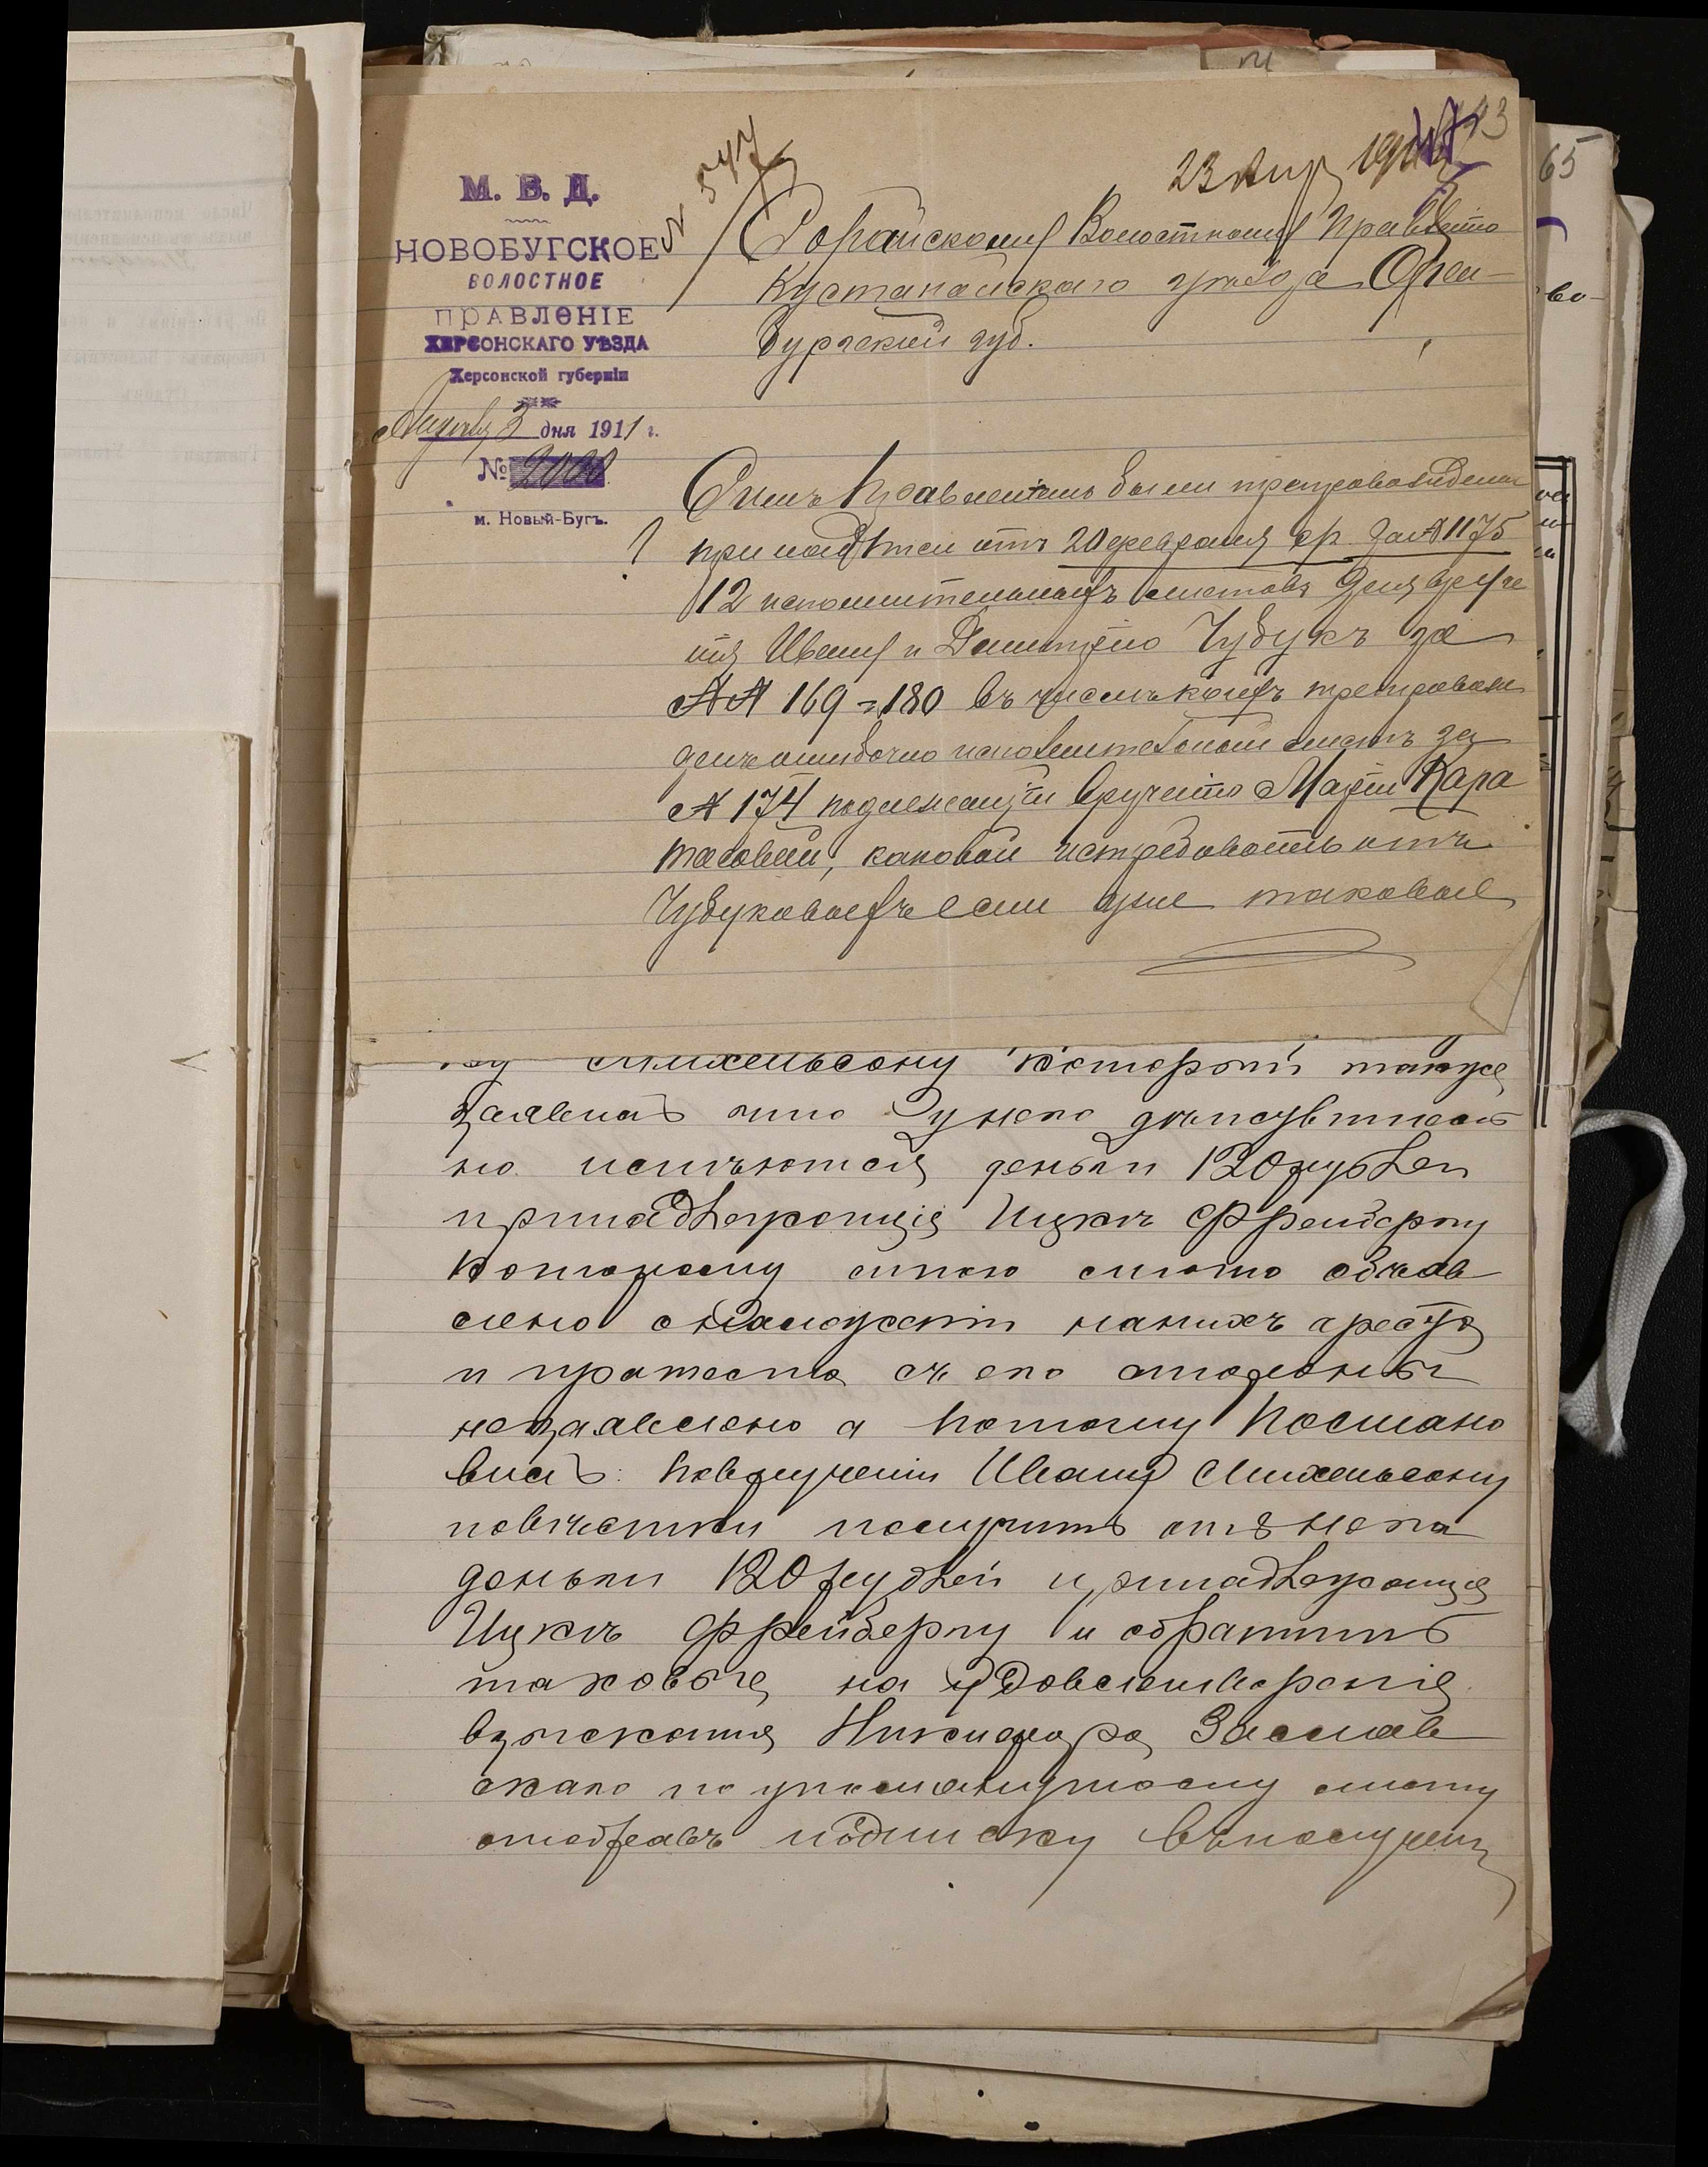 65
23 Апр 191
43
М. В. Д.
НОВОБУГСКОЕ
ВОЛОСТНОЕ
ПРАВЛЕНІЕ
ХЕРСОНСКАГО УѢЗДА
Херсонской губерніи
3 дня 1911 г.
№ 2000
м. Новый-Бугъ.
N 547
Волостному Правленію
Кустанайскаго уѣзда Орен-
бургской губ.
Симъ Правленіемъ были препровождены
при надписи отъ 20 февраля с/г. за № 1175
12 исполнительныхъ листовъ для вруче
нія Ивану и Дмитрію Чубукъ за
№№ 169=180 въ числѣ коихъ препровож
денъ ошибочно исполнительный листъ за
№ 174 подлежащій врученію Маріи Кара
тасовой, каковой истребовать отъ
Чубуковыхъ если уже таковые
Михельсону который также
заявилъ что у него дѣйствитель
но имѣются деньги 120 рублей
принадлежащія Ицкѣ Фрейбергу
которому мною
о наложеніи на нихъ ареста
и протеста съ его стороны
незаявлено а потому Постано
вилъ: По врученіи Ивану Михельсону
повѣстки получить отъ него
деньги 120 рублей принадлежащія
Ицкѣ Фрейбергу и обратить
таковые на удовлетвореніе
взысканія Никифора Заслав
скаго по упомянутому листу
отобравъ подписку въ полученіи